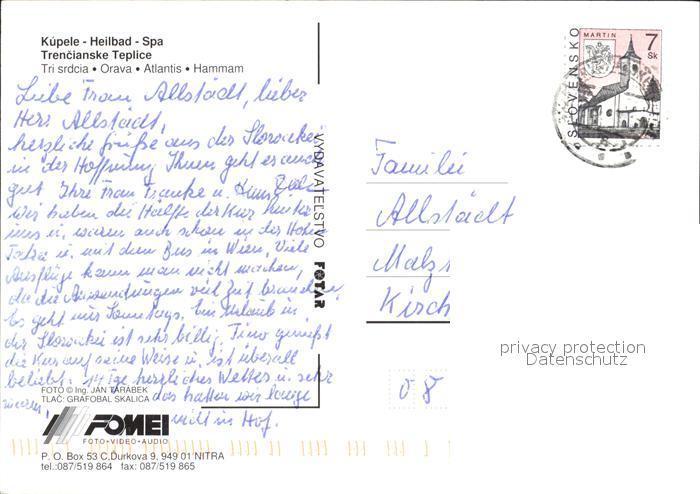 Kúpele - Heilbad - Spa
Trenčianske Teplice
Tri srdcia • Orava • Atlantis • Hammam
Liebe Frau Allstädt, lieber
Herr Allstädt,
herzliche Grüße aus der Slowakei
in der Hoffnung Ihnen geht es auch
gut Ihre Frau Franke u.
Wir haben die Hälfte der Kur hinter
uns u. waren auch schon in der Hohen
Tatra u. mit dem Bus in Wien. Viele
Ausflüge kann man nicht machen,
da die Anwendungen viel Zeit brauchen.
Es geht nur Sonntags. Ein Urlaub in
der Slowakei ist sehr billig. Timo genießt
die Kur auf seine Weise u. ist überall
beliebt. herzliches Wetter u. sehr
warm, das hatten wir lange
nicht in Hof.
FOTO © Ing. JÁN TARÁBEK
TLAČ: GRAFOBAL SKALICA
FOMEI
FOTO•VIDEO•AUDIO
P. O. Box 53 C,Ďurkova 9, 949 01 NITRA
tel.:087/519 864 fax: 087/519 865
VYDAVATEĽSTVO FOTAR
SLOVENSKO
MARTIN
7
Sk
Familie
Allstädt
Kirch
08
privacy protection
Datenschutz